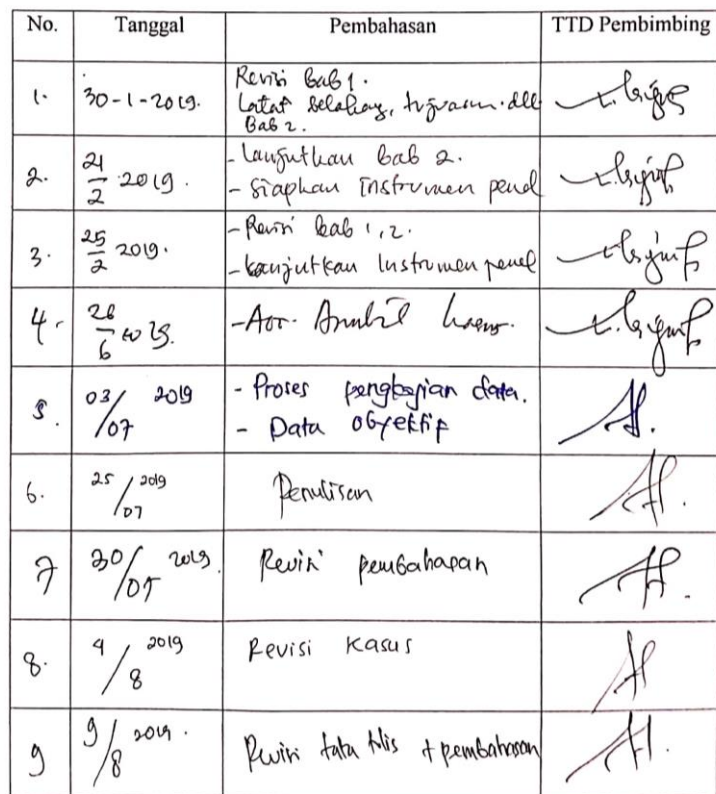 No. Tanggal Pembahasan TTD Pembimbing
1. 30-1-2019. Revisi Bab 1.
Latar belakang, tujuan dll
Bab 2.
2. 21/2 2019. - Lanjutkan bab 2.
- Siapkan Instrumen penel
3. 25/2 2019. - Revisi bab 1, 2.
- Lanjutkan Instrumen penel
4. 26/6 2019. - Acc. Ambil
5. 03/07 2019 - Proses pengkajian data.
- Data objektif
6. 25/07 2019 Penulisan
7 30/07 2019. Revisi pembahasan
8. 4/8 2019 Revisi Kasus
9 9/8 2019. Revisi tata tulis + pembahasan